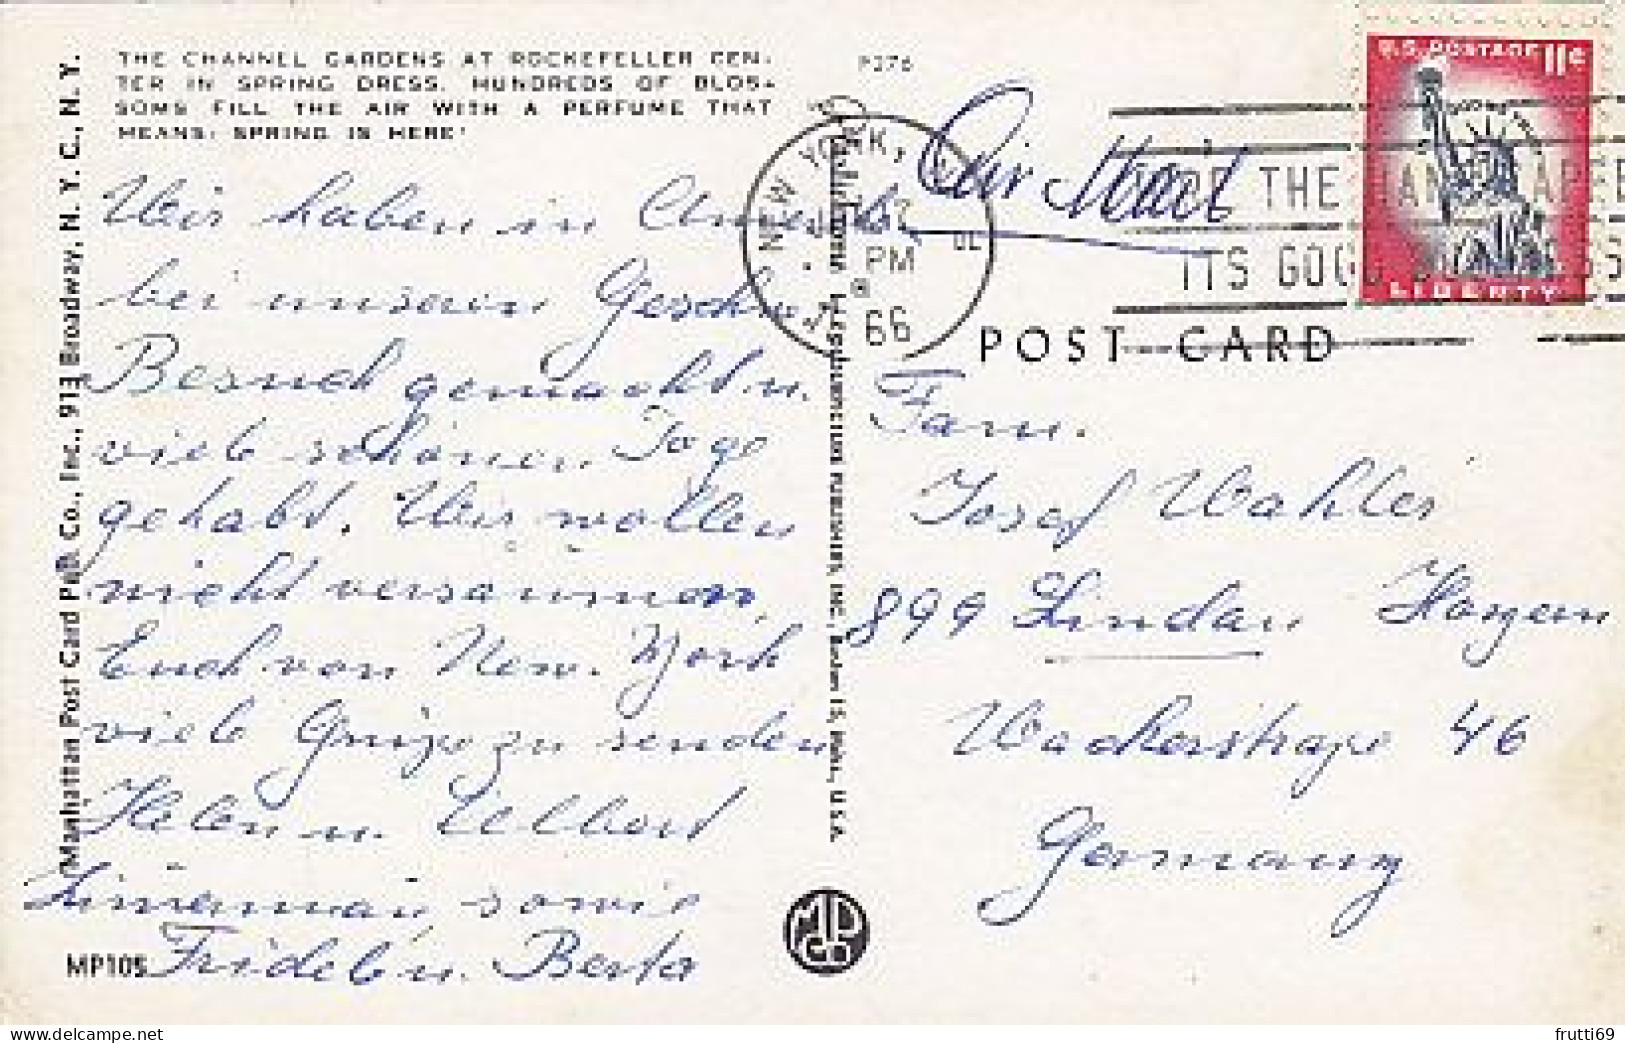 THE CHANNEL GARDENS AT ROCKEFELLER CEN-
TER IN SPRING DRESS. HUNDREDS OF BLOS-
SOMS FILL THE AIR WITH A PERFUME THAT
MEANS: SPRING IS HERE!
P276
Wir haben in Amerika
bei unseren Geschw.
Besuch gemacht u.
viele schönen Tage
gehabt. Wir wollen
nicht versäumen,
Euch von New. York
viele Grüße zu senden
Helen u.
sowie
Fridel u. Berta
MP105
Manhattan Post Card Pub. Co., Inc., 913 Broadway, N. Y. C., N. Y.
PUBLISHERS, INC., Boston 15, Mass., U.S.A.
MLD
CO
Air Mail
NEW YORK, N.Y.
PM
66
THE HANDICAPPED
ITS GOOD BUSINESS
U.S. POSTAGE 11¢
LIBERTY
POST CARD
Fam.
Josef Wahler
899 Lindau
46
Germany
delcampe.net
frutti69